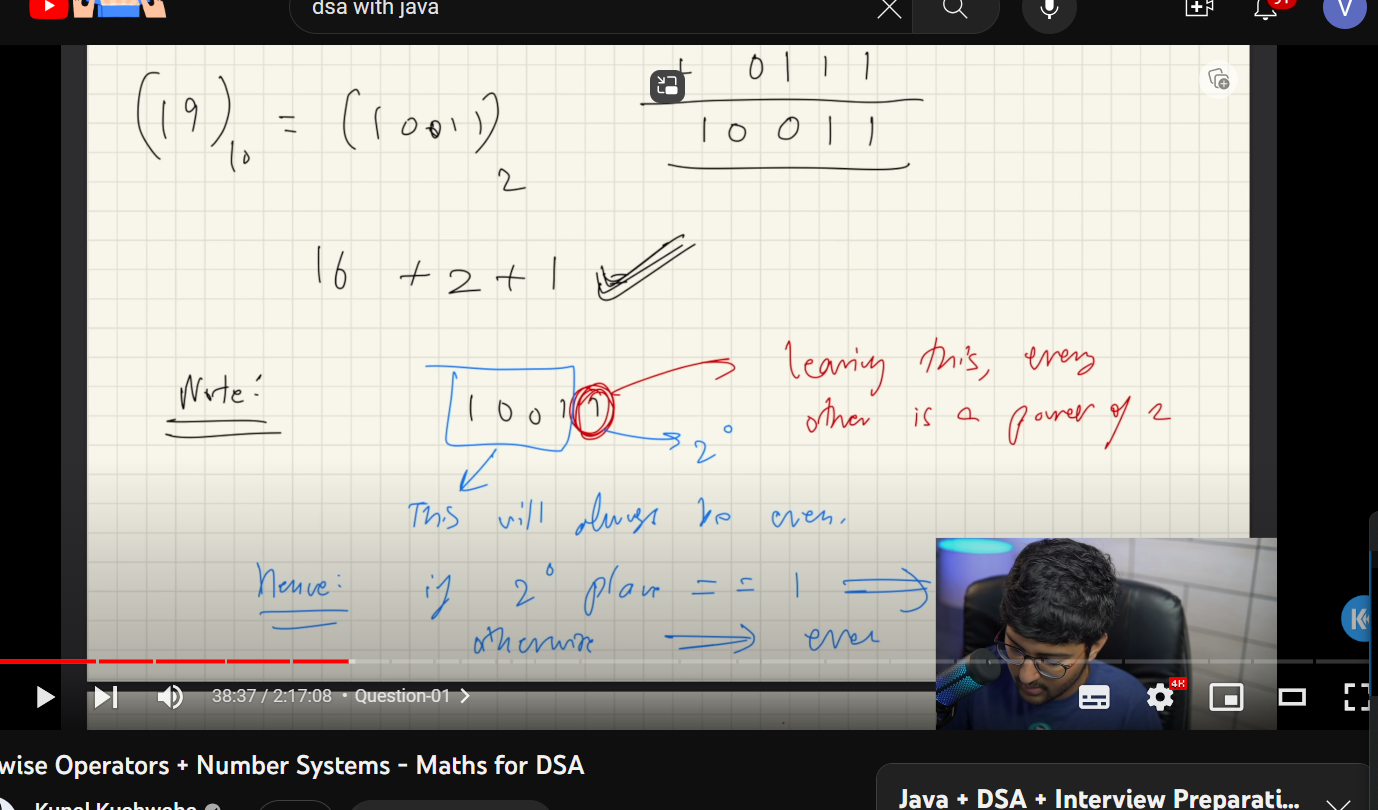 dsa with java
+ 0 1 1 1
(19)10 = (10011)2
1 0 0 1 1
16 + 2 + 1
Note:
1 0 0 1 1
leaving this, every
other is a power of 2
2⁰
This will always be even.
Hence: if 2⁰ place == 1 ⟹
otherwise ⟹ even
38:37 / 2:17:08 • Question-01
4K
wise Operators + Number Systems - Maths for DSA
Java + DSA + Interview Preparati...
Kunal Kushwaha
V